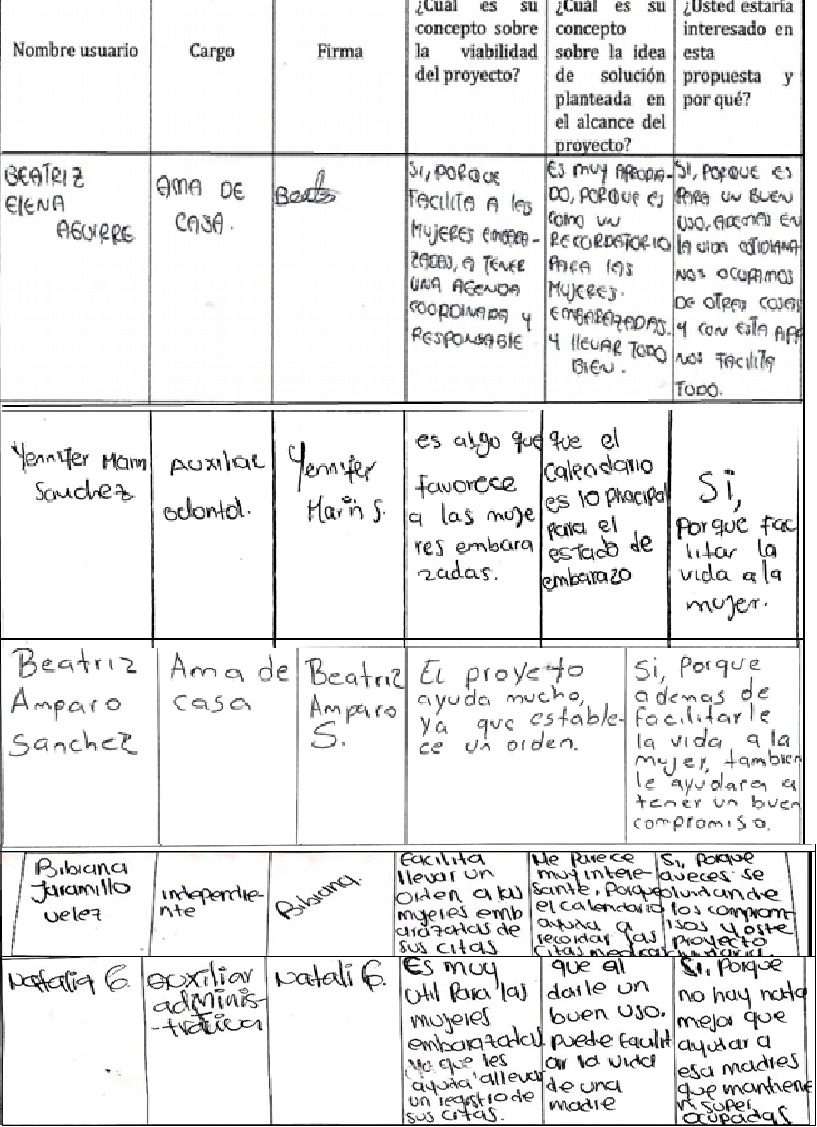 Nombre usuario
Cargo
Firma
¿Cuál es su
concepto sobre
la viabilidad
del proyecto?
¿Cuál es su
concepto
sobre la idea
de solución
planteada en
el alcance del
proyecto?
¿Usted estaría
interesado en
esta
propuesta y
por qué?
BEATRIZ
ELENA
AGUIRRE
AMA DE
CASA.
SI, PORQUE
FACILITA A LAS
MUJERES EMBARA-
ZADAS, A TENER
UNA AGENDA
COORDINADA Y
RESPONSABLE
ES MUY
DO, PORQUE ES
COMO UN
RECORDATORIO
PARA LAS
MUJERES.
EMBARAZADAS.
Y LLEVAR TODO
BIEN.
SI, PORQUE ES
PARA UN BUEN
USO, ADEMAS EN
LA VIDA COTIDIANA
NOS OCUPAMOS
DE OTRAS COSAS
Y CON ESTA APP
NOS FACILITA
TODO.
Yennifer Marin
Sanchez
Auxiliar
odontol.
Yennifer
Marin S.
es algo que
favorece
a las muje
res embara
zadas.
que el
calendario
es lo principal
para el
estado de
embarazo
Si,
Porque faci
litar la
vida a la
mujer.
Beatriz
Amparo
Sanchez
Ama de
casa
Beatriz
Amparo
S.
El proyecto
ayuda mucho,
ya que estable-
ce un orden.
Si, Porque
ademas de
facilitarle
la vida a la
mujer, tambien
le ayudara a
tener un buen
compromiso.
Bibiana
Jaramillo
Velez
independie-
nte
Bibiana.
Facilita
llevar un
orden a las
mujeres emb
arazadas de
sus citas
Me Parece
muy intere-
sante, Porque
el calendario
ayuda a
recordar las
citas medicas
Si, Porque
aveces se
olvidan de
los comprom-
isos y este
proyecto
Natalia G.
auxiliar
adminis-
-trativa
Natali G.
Es muy
Util Para las
mujeres
embarazadas
Ya que les
ayuda a llevar
un registro de
sus citas.
que al
darle un
buen uso.
Puede facilit
ar la vida
de una
madre
Si, Porque
no hay nada
mejor que
ayudar a
esa madres
que mantiene
n super
ocupadas